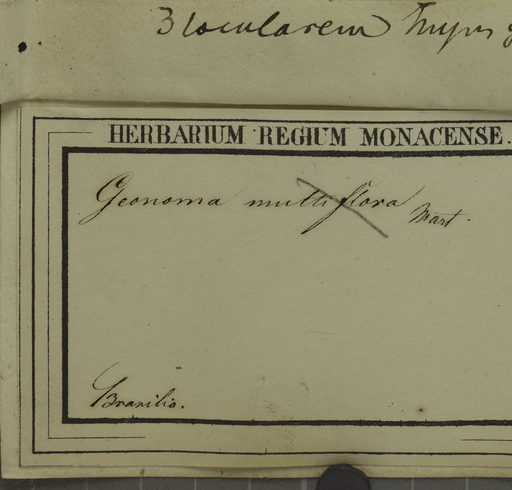 3 locularem hujus
HERBARIUM REGIUM MONACENSE.
Geonoma multiflora Mart.
Brasilia.